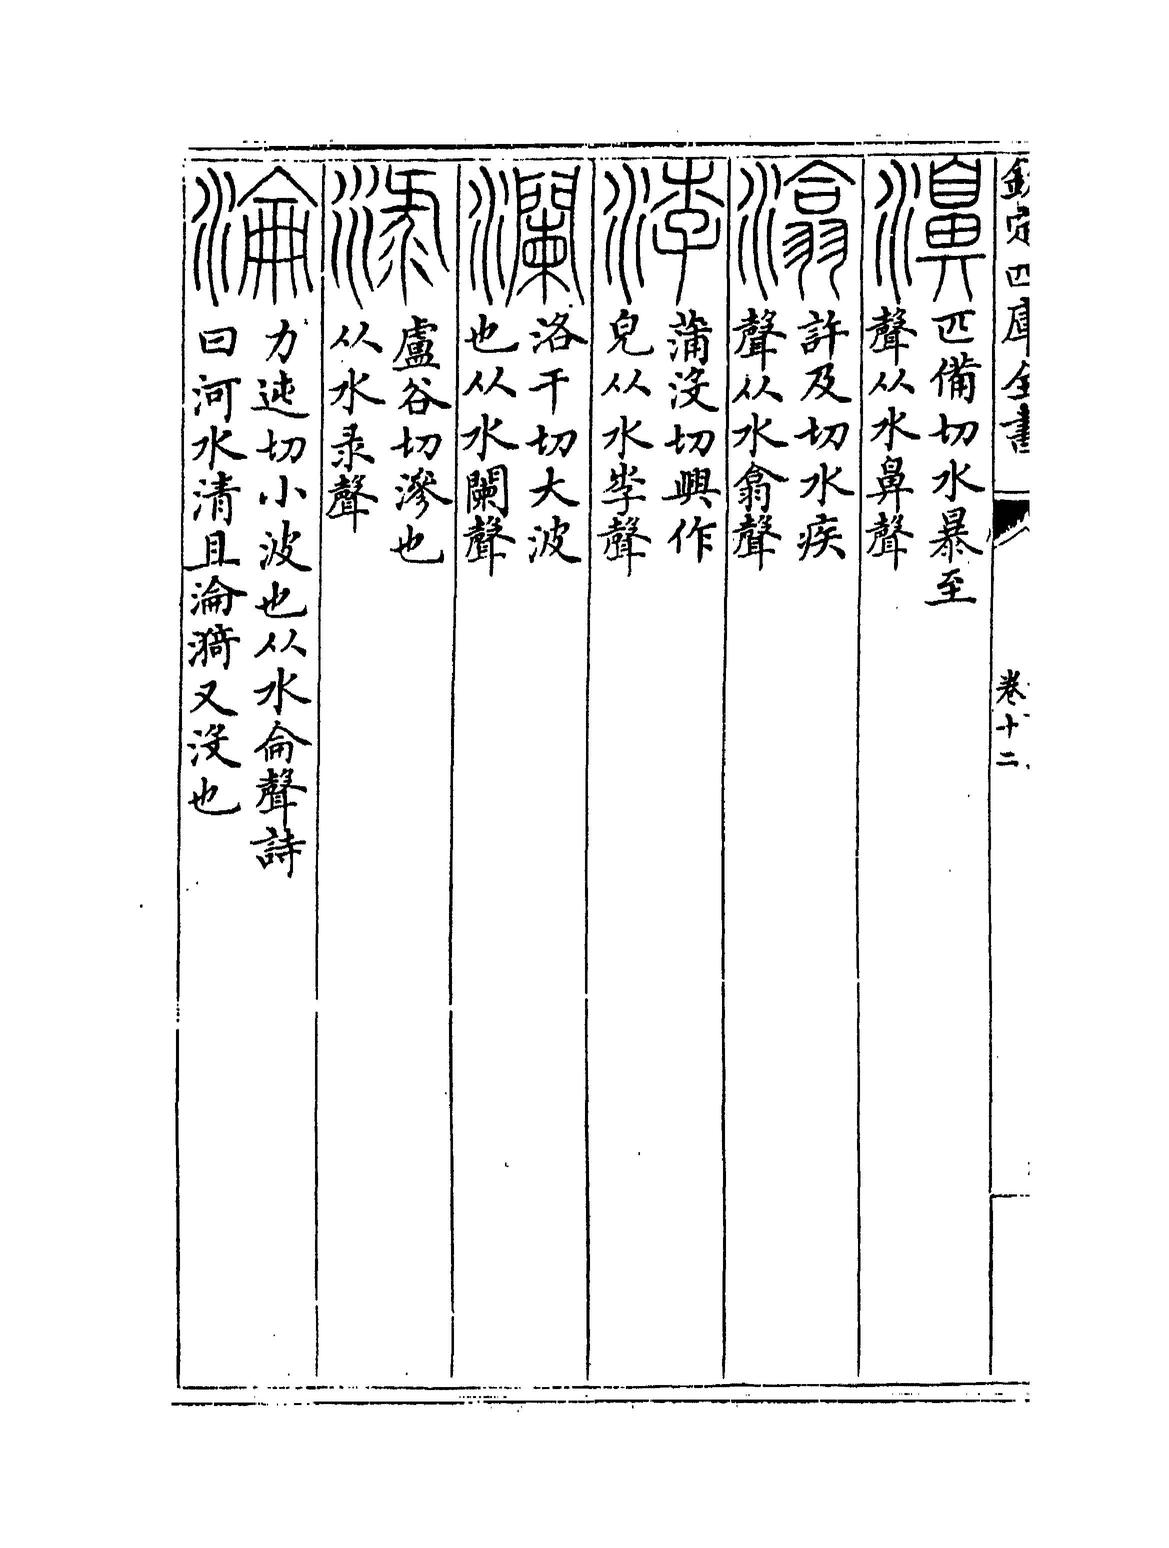 欽定四庫全書
卷十二
濞
匹備切水暴至
聲从水鼻聲
潝
許及切水疾
聲从水翕聲
浡
蒲沒切興作
皃从水孛聲
瀾
洛干切大波
也从水闌聲
淥
盧谷切滲也
从水录聲
淪
力迍切小波也从水侖聲詩
曰河水清且淪漪又沒也